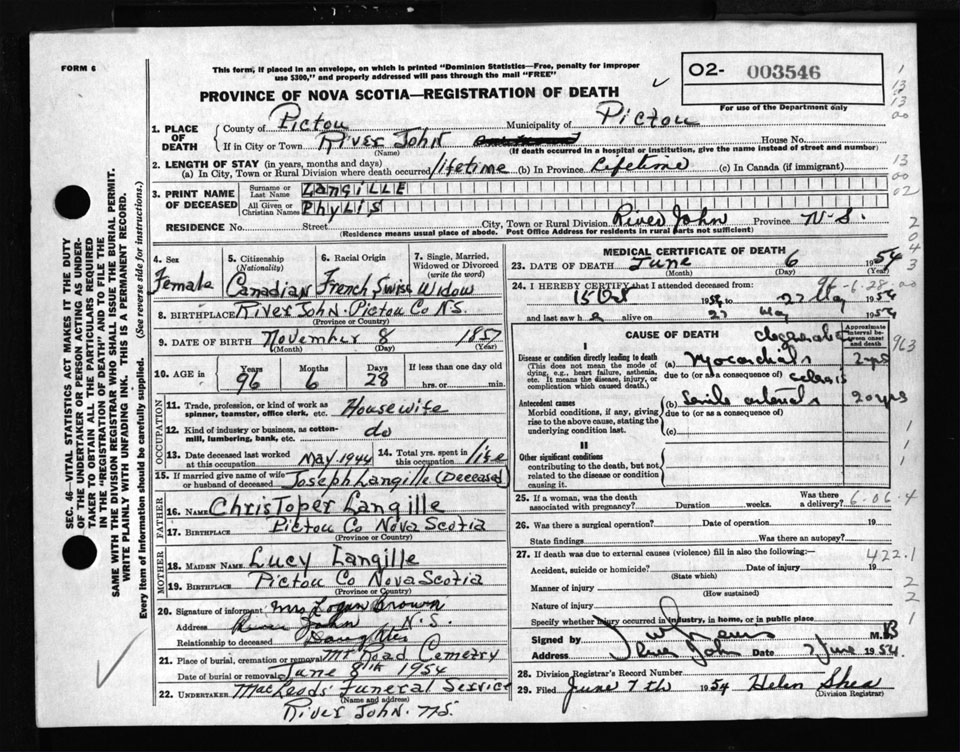 FORM 6
This form, if placed in an envelope, on which is printed "Dominion Statistics—Free, penalty for improper
use $300," and properly addressed will pass through the mail "FREE"
02- 003546
For use of the Department only
PROVINCE OF NOVA SCOTIA—REGISTRATION OF DEATH
1. PLACE OF DEATH
County of Pictou Municipality of Pictou
If in City or Town River John House No.
(Name) (If death occurred in a hospital or institution, give the name instead of street and number)
2. LENGTH OF STAY (in years, months and days)
(a) In City, Town or Rural Division where death occurred lifetime (b) In Province Lifetime (c) In Canada (if immigrant)
3. PRINT NAME OF DECEASED
Surname or Last Name LANGILLE
All Given or Christian Names PHYLIS
RESIDENCE No. Street City, Town or Rural Division River John Province N.S.
(Residence means usual place of abode. Post Office Address for residents in rural parts not sufficient)
4. Sex Female
5. Citizenship (Nationality) Canadian
6. Racial Origin French Swiss
7. Single, Married, Widowed or Divorced (write the word) Widow
8. BIRTHPLACE River John. Pictou Co N.S.
(Province or Country)
9. DATE OF BIRTH November 8 1857
(Month) (Day) (Year)
10. AGE in Years 96 Months 6 Days 28 If less than one day old
hrs. or min.
OCCUPATION
11. Trade, profession, or kind of work as spinner, teamster, office clerk, etc. Housewife
12. Kind of industry or business, as cotton-mill, lumbering, bank, etc. do
13. Date deceased last worked at this occupation May 1944 14. Total yrs. spent in this occupation life
15. If married give name of wife or husband of deceased Joseph Langille (Deceased)
FATHER
16. NAME Christoper Langille
17. BIRTHPLACE Pictou Co Nova Scotia
(Province or Country)
MOTHER
18. MAIDEN NAME Lucy Langille
19. BIRTHPLACE Pictou Co Nova Scotia
(Province or Country)
20. Signature of informant Mrs Logan Brown
Address River John N.S.
Relationship to deceased Daughter
21. Place of burial, cremation or removal Mt Road Cemetry
Date of burial or removal June 8th 1954
22. UNDERTAKER MacLeods' Funeral Service
(Name and address)
River John. N.S.
MEDICAL CERTIFICATE OF DEATH
23. DATE OF DEATH June 6 1954
(Month) (Day) (Year)
96-6-28
24. I HEREBY CERTIFY that I attended deceased from:
15 Oct 1954 to 27 May 1954
and last saw h e alive on 27 May 1954
CAUSE OF DEATH
Approximate interval between onset and death
I
Disease or condition directly leading to death
(This does not mean the mode of dying, e.g., heart failure, asthenia, etc. It means the disease, injury, or complication which caused death.)
(a) 2 yrs
due to (or as a consequence of)
Antecedent causes
Morbid conditions, if any, giving rise to the above cause, stating the underlying condition last.
(b) Senile 20 yrs
due to (or as a consequence of)
(c)
II
Other significant conditions
contributing to the death, but not related to the disease or condition causing it.
25. If a woman, was the death associated with pregnancy? Duration weeks. Was there a delivery?
26. Was there a surgical operation? Date of operation 19
State findings Was there an autopsy?
27. If death was due to external causes (violence) fill in also the following:
422.1
Accident, suicide or homicide? Date of injury 19
(State which)
Manner of injury
(How sustained)
Nature of injury
Specify whether injury occurred in industry, in home, or in public place
Signed by M.B
Address River John Date 7 June 1954.
28. Division Registrar's Record Number
29. Filed June 7th 1954 Helen Shea
(Division Registrar)
SEC. 46—VITAL STATISTICS ACT MAKES IT THE DUTY
OF THE UNDERTAKER OR PERSON ACTING AS UNDER-
TAKER TO OBTAIN ALL THE PARTICULARS REQUIRED
IN THE "REGISTRATION OF DEATH" AND TO FILE THE
SAME WITH THE DIVISION REGISTRAR WHO SHALL ISSUE THE BURIAL PERMIT.
WRITE PLAINLY WITH UNFADING INK. THIS IS A PERMANENT RECORD.
Every item of information should be carefully supplied. (See reverse side for instructions.)